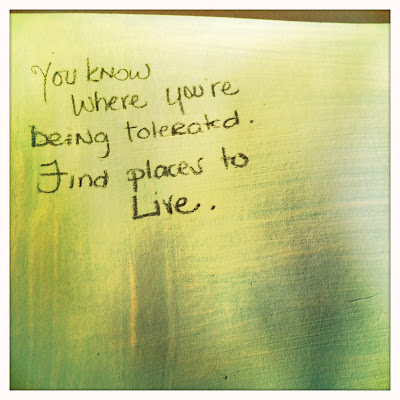 You know
where you're
being tolerated.
Find places to
Live.